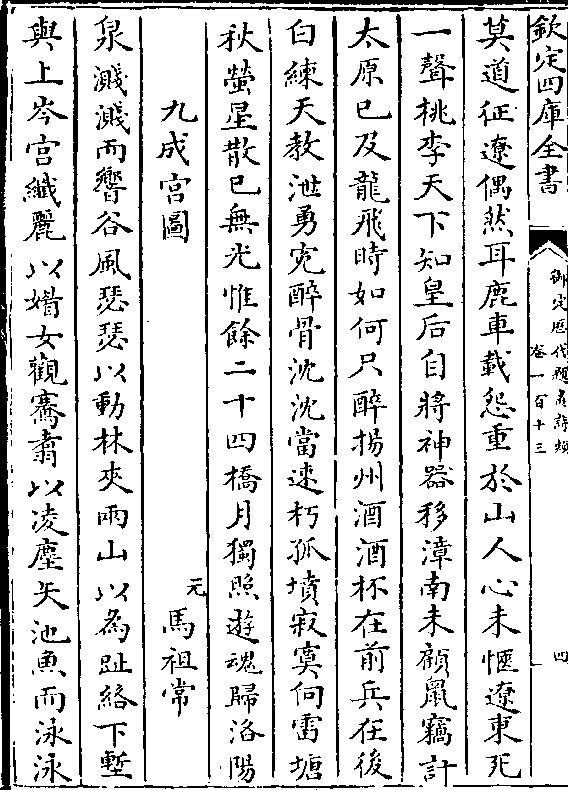 欽定四庫全書
御定歷代題畫詩類
卷一百十三
四
莫道征遼偶然耳鹿車載怨重於山人心未愜遼東死
一聲桃李天下知皇后自將神器移漳南未顧鼠竊計
太原已及龍飛時如何只醉揚州酒酒杯在前兵在後
白練天教泄勇寃醉骨沈沈當速朽孤墳寂寞向雷塘
秋螢星散已無光惟餘二十四橋月獨照遊魂歸洛陽
九成宮圖
元 馬祖常
泉濺濺而響谷風瑟瑟以動林夾兩山以為趾絡下塹
與上岑宮纎麗以媠女觀騫翥以凌塵矢池魚而泳泳